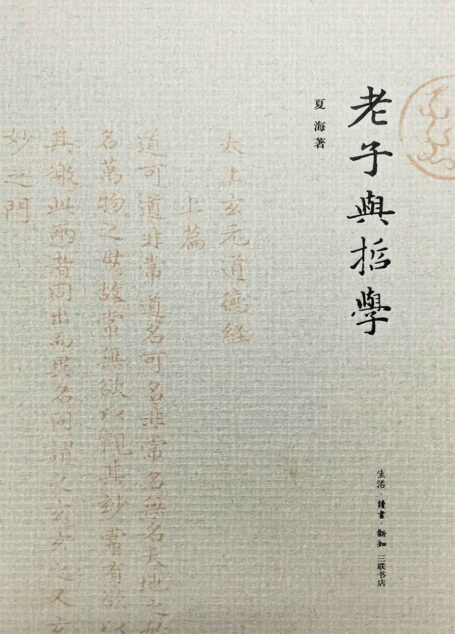 老子與哲學
夏 海 著
生活·讀書·新知 三联书店
太上玄元道德經
上篇
道可道非常道名可名非常名無名天地之
名萬物之母故常無欲以觀其妙常有欲以
其徼此兩者同出而異名同謂之玄玄之又玄
妙之門